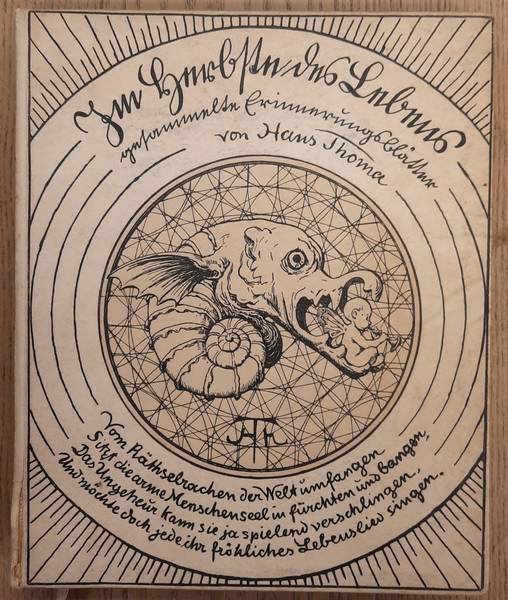 Im Herbste des Lebens
gesammelte Erinnerungsblätter
von Hans Thoma
HTh
Vom Räthselrachen der Welt umfangen
Sitzt die arme Menschenseel in fürchten und bangen,
Das Ungeheur kann sie ja spielend verschlingen,
Und möchte doch jede ihr fröhliches Lebenslied singen.